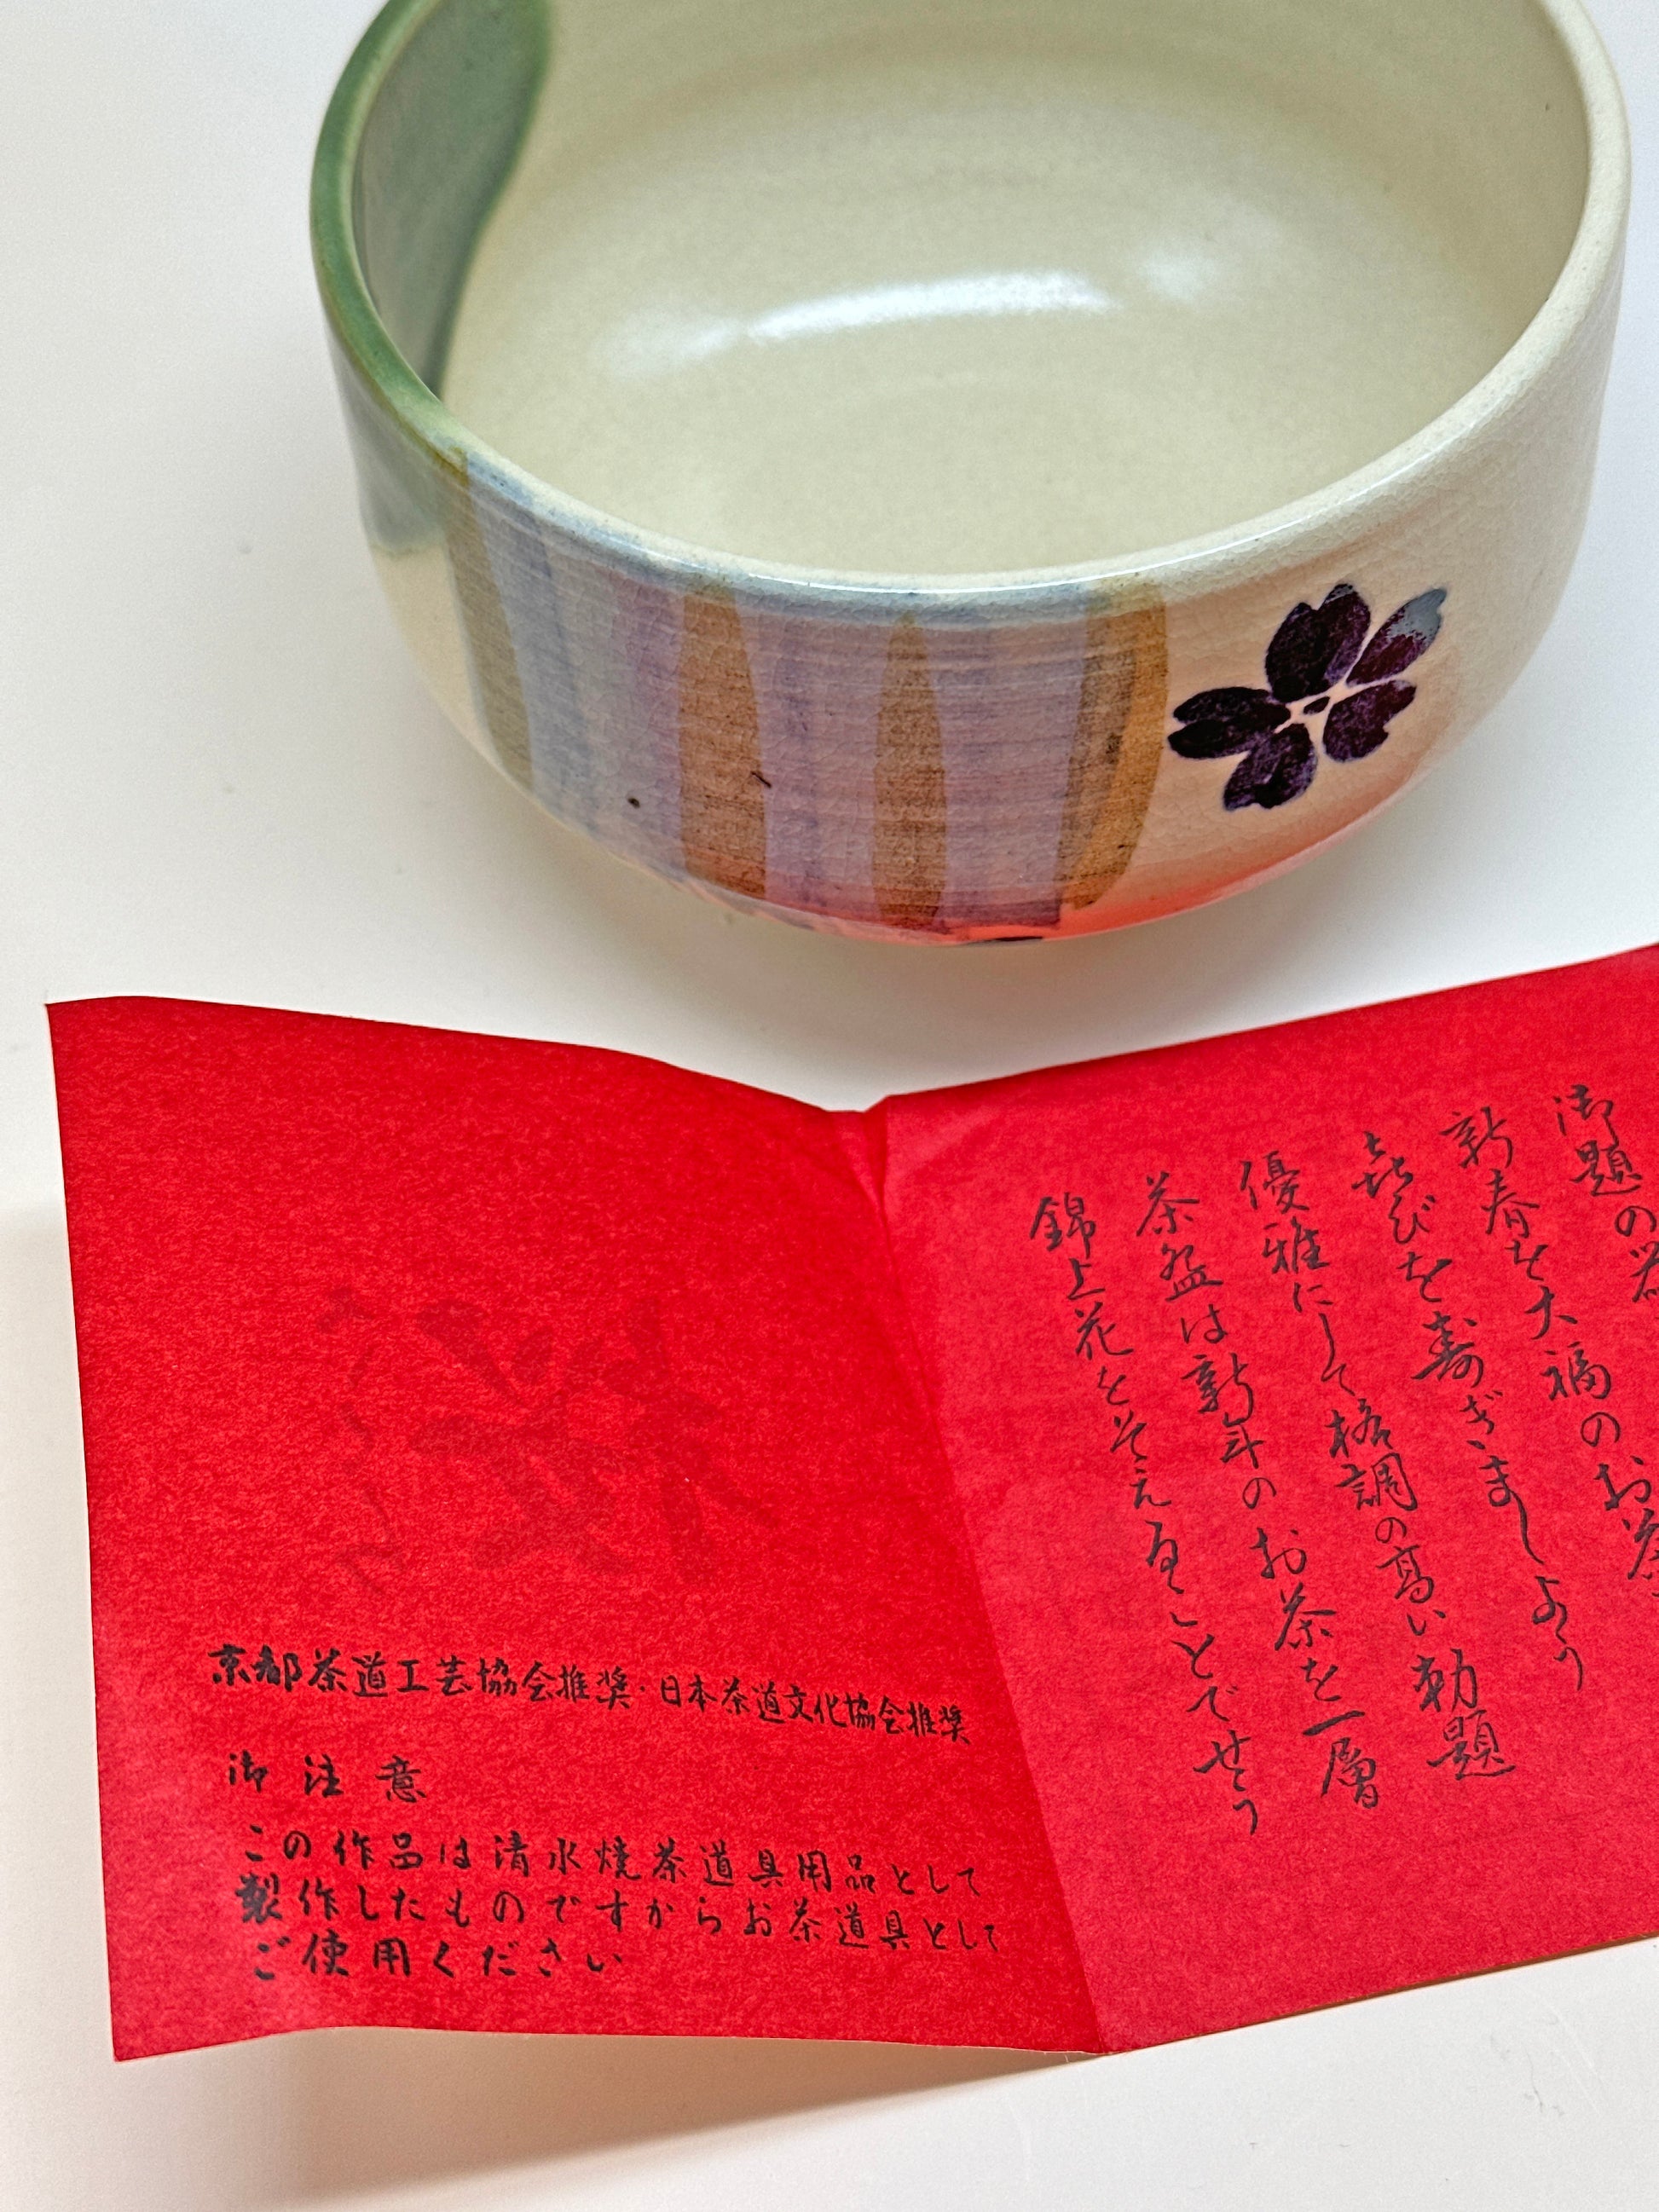 御題の
新春を大福のお茶
㐂びを寿ぎましよう
優雅にして格調の高い勅題
茶盌は新年のお茶を一層
錦上花をそえることでせう
京都茶道工芸協会推奨・日本茶道文化協会推奨
御注意
この作品は清水焼茶道具用品として
製作したものですからお茶道具として
ご使用ください